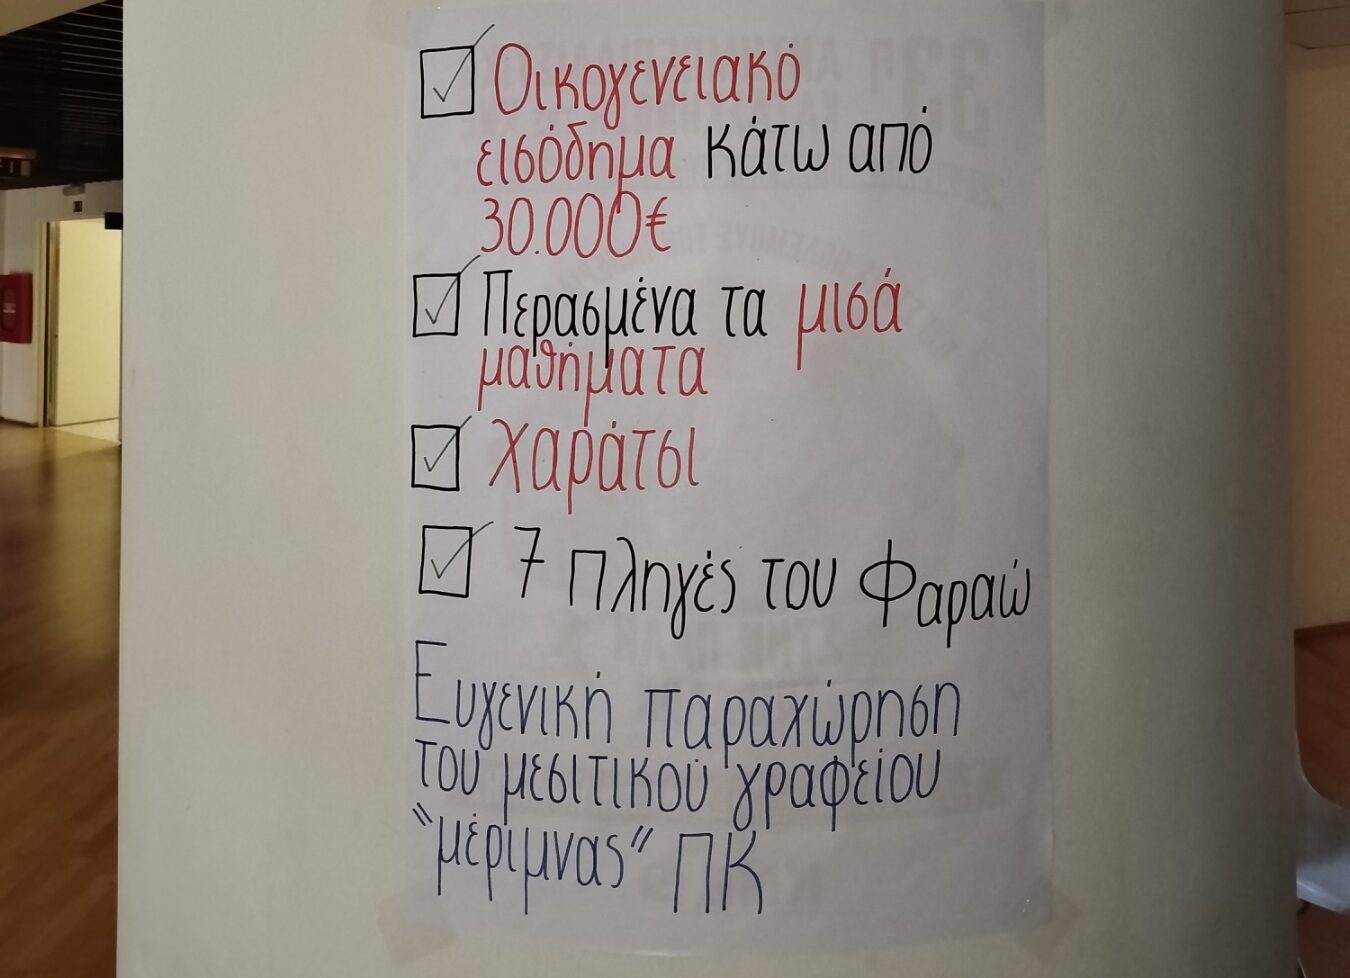 Οικογενειακό
εισόδημα κάτω από
30.000€
Περασμένα τα μισά
μαθήματα
Χαράτσι
7 πληγές του Φαραώ
Ευγενική παραχώρηση
του μεσιτικού γραφείου
"μέριμνας" ΠΚ